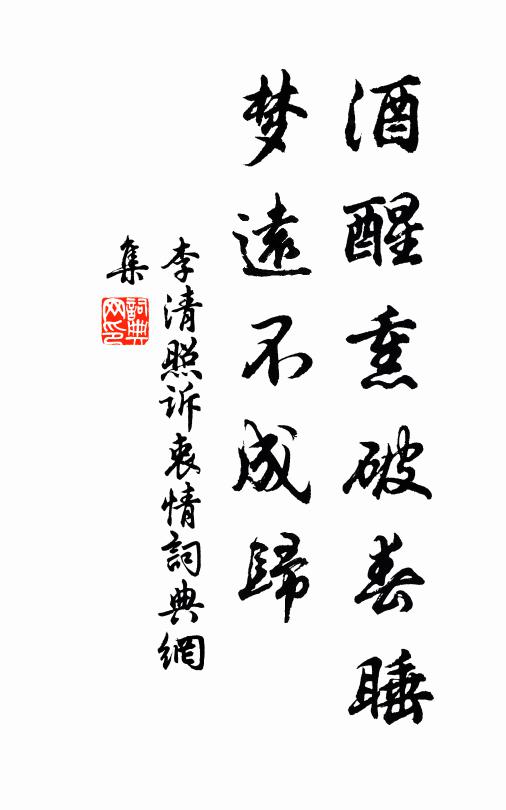 酒醒熏破春睡
梦遠不成歸
李清照诉衷情詞典網
集
詞典網印